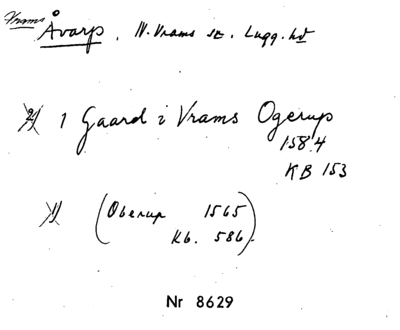 Vrams
Åvarp, N. Vrams sn. Lugg. hd
2) 1 Gaard i Vrams Ogerup
1584
KB 153
1) (Oberup 1565
Kb. 586).
Nr 8629